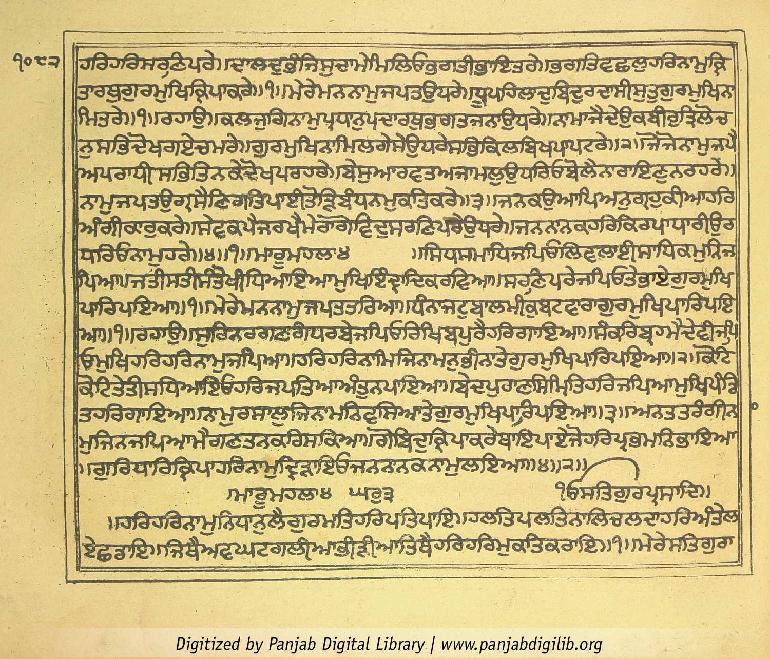 ੧੦੮੨
ਹਰਿਹਰਿਸਰਣਿਪਰੇ॥ਦਾਲਦੁਭੰਜਿਸੁਦਾਮੇਮਿਲਿਓਭਗਤੀਭਾਇਤਰੇ॥ਭਗਤਿਵਛਲੁਹਰਿਨਾਮੁਕ੍ਰਿ
ਤਾਰਥੁਗੁਰਮੁਖਿਕ੍ਰਿਪਾਕਰੇ॥੧॥ਮੇਰੇਮਨਨਾਮੁਜਪਤਉਧਰੇ॥ਧ੍ਰੂਪ੍ਰਹਿਲਾਦੁਬਿਦਰੁਦਾਸੀਸੁਤੁਗੁਰਮੁਖਿਨਾ
ਮਿਤਰੇ॥੧॥ਰਹਾਉ॥ਕਲਜੁਗਿਨਾਮੁਪ੍ਰਧਾਨੁਪਦਾਰਥੁਭਗਤਜਨਾਉਧਰੇ॥ਨਾਮਾਜੈਦੇਉਕਬੀਰੁਤ੍ਰਿਲੋਚ
ਨੁਸਭਿਦੋਖਗਏਚਮਰੇ॥ਗੁਰਮੁਖਿਨਾਮਿਲਗੇਸੇਉਧਰੇਸਭਿਕਿਲਬਿਖਪਾਪਟਰੇ॥੨॥ਜੋਜੋਨਾਮੁਜਪੈ
ਅਪਰਾਧੀਸਭਿਤਿਨਕੇਦੋਖਪਰਹਰੇ॥ਬੇਸੁਆਰਵਤਅਜਾਮਲੁਉਧਰਿਓਬੋਲੈਨਾਰਾਇਣੁਨਰਹਰੇ॥
ਨਾਮੁਜਪਤਉਗ੍ਰਸੈਣਿਗਤਿਪਾਈਤੋੜਿਬੰਧਨਮੁਕਤਿਕਰੇ॥੩॥ਜਨਕਉਆਪਿਅਨੁਗ੍ਰਹੁਕੀਆਹਰਿ
ਅੰਗੀਕਾਰੁਕਰੇ॥ਸੇਵਕਪੈਜਰਖੈਮੇਰਾਗੋਵਿਦੁਸਰਣਿਪਰੇਉਧਰੇ॥ਜਨਨਾਨਕਹਰਿਕਿਰਪਾਧਾਰੀਉਰ
ਧਰਿਓਨਾਮੁਹਰੇ॥੪॥੧॥ਮਾਰੂਮਹਲਾ੪ ॥ਸਿਧਸਮਾਧਿਜਪਿਓਲਿਵਲਾਈਸਾਧਿਕਮੁਨਿਜ
ਪਿਆ॥ਜਤੀਸਤੀਸੰਤੋਖੀਧਿਆਇਆਮੁਖਿਇੰਦ੍ਰਾਦਿਕਰਵਿਆ॥ਸਰਣਿਪਰੇਜਪਿਓਤੇਭਾਏਗੁਰਮੁਖਿ
ਪਾਰਿਪਇਆ॥੧॥ਮੇਰੇਮਨਨਾਮੁਜਪਤਤਰਿਆ॥ਧੰਨਾਜਟੁਬਾਲਮੀਕੁਬਟਵਾਰਾਗੁਰਮੁਖਿਪਾਰਿਪਇ
ਆ॥੧॥ਰਹਾਉ॥ਸੁਰਿਨਰਗਣਗੰਧਰਬੇਜਪਿਓਰਿਖਿਬਪੁਰੈਹਰਿਗਾਇਆ॥ਸੰਕਰਿਬ੍ਰਹਮੈਦੇਵੀਜਪਿ
ਓਮੁਖਿਹਰਿਹਰਿਨਾਮੁਜਪਿਆ॥ਹਰਿਹਰਿਨਾਮਿਜਿਨਾਮਨੁਭੀਨਾਤੇਗੁਰਮੁਖਿਪਾਰਿਪਇਆ॥੨॥ਕੋਟਿ
ਕੋਟਿਤੇਤੀਸਧਿਆਇਓਹਰਿਜਪਤਿਆਅੰਤੁਨਪਾਇਆ॥ਬੇਦਪੁਰਾਣਸਿਮ੍ਰਿਤਿਹਰਿਜਪਿਆਮੁਖਿਪੰਡਿ
ਤਹਰਿਗਾਇਆ॥ਨਾਮੁਰਸਾਲੁਜਿਨਾਮਨਿਵਸਿਆਤੇਗੁਰਮੁਖਿਪਾਰਿਪਇਆ॥੩॥ਅਨਤਤਰੰਗੀਨਾ
ਮੁਜਿਨਜਪਿਆਮੈਗਣਤਨਕਰਿਸਕਿਆ॥ਗੋਬਿਦੁਕ੍ਰਿਪਾਕਰੇਥਾਇਪਾਏਜੋਹਰਿਪ੍ਰਭਮਨਿਭਾਇਆ
॥ਗੁਰਿਧਾਰਿਕ੍ਰਿਪਾਹਰਿਨਾਮੁਦ੍ਰਿੜਾਇਓਜਨਨਾਨਕਨਾਮੁਲਇਆ॥੪॥੨॥
ਮਾਰੂਮਹਲਾ੪ ਘਰੁ੩ ੴਸਤਿਗੁਰਪ੍ਰਸਾਦਿ॥
॥ਹਰਿਹਰਿਨਾਮੁਨਿਧਾਨੁਲੈਗੁਰਮਤਿਹਰਿਪਤਿਪਾਇ॥ਹਲਤਿਪਲਤਿਨਾਲਿਚਲਦਾਹਰਿਅੰਤੇਲ
ਏਛਡਾਇ॥ਜਿਥੈਅਵਘਟਗਲੀਆਭੀੜੀਆਤਿਥੈਹਰਿਹਰਿਮੁਕਤਿਕਰਾਇ॥੧॥ਮੇਰੇਸਤਿਗੁਰਾ
Digitized by Panjab Digital Library | www.panjabdigilib.org